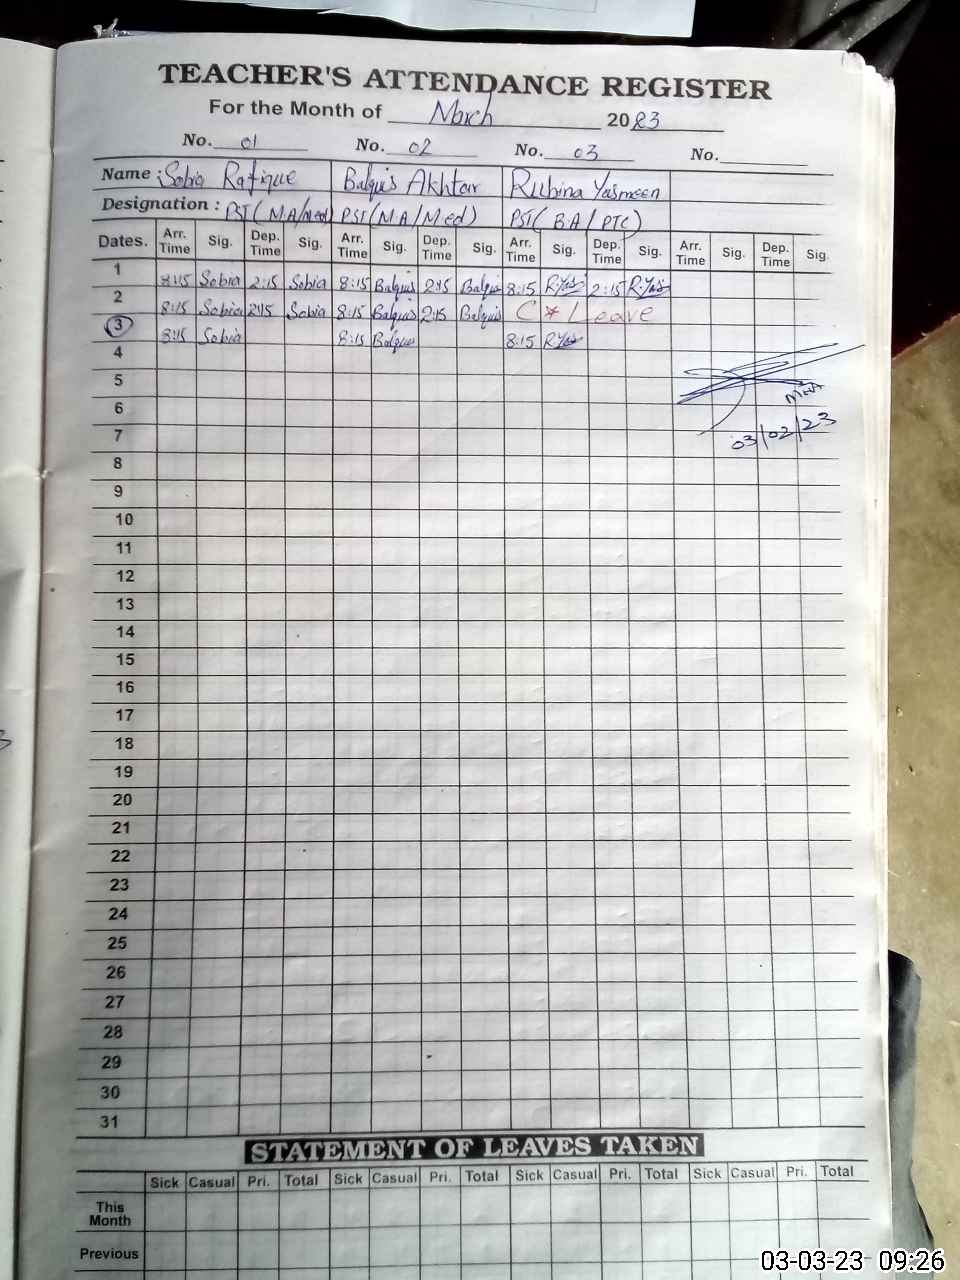 TEACHER'S ATTENDANCE REGISTER
For the Month of March 2023
No. 01 No. 02 No. 03 No.
Name : Sobia Rafique Balquis Akhtar Rubina Yasmeen
Designation : PST(MA/Med) PST(MA/Med) PST(BA/PTC)
Dates. Arr. Time Sig. Dep. Time Sig. Arr. Time Sig. Dep. Time Sig. Arr. Time Sig. Dep. Time Sig. Arr. Time Sig. Dep. Time Sig.
1 8:15 Sobia 2:15 Sobia 8:15 Balquis 2:15 Balquis 8:15 R.Yas 2:15 R.Yas
2 8:15 Sobia 2:15 Sobia 8:15 Balquis 2:15 Balquis C * Leave
3 8:15 Sobia 8:15 Balquis 8:15 R.Yas
4
5
6
7 03/02/23
8
9
10
11
12
13
14
15
16
17
18
19
20
21
22
23
24
25
26
27
28
29
30
31
STATEMENT OF LEAVES TAKEN
Sick Casual Pri. Total Sick Casual Pri. Total Sick Casual Pri. Total Sick Casual Pri. Total
This Month
Previous
03-03-23 09:26